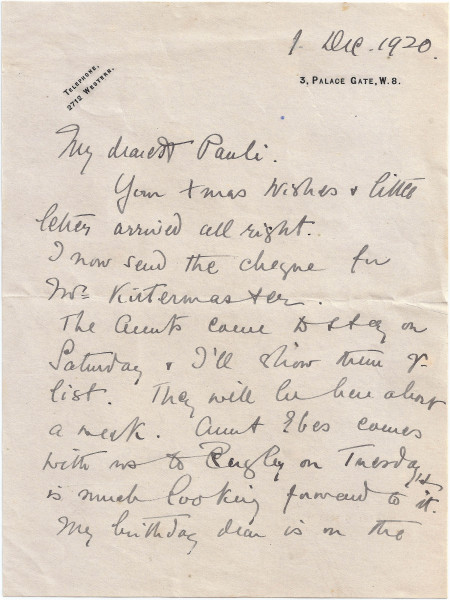 1. Dec. 1920.
TELEPHONE,
2712 WESTERN.
3, PALACE GATE, W.8.
My dearest Pauli.
Your Xmas wishes & little
letter arrived all right.
I now send the cheque for
Mrs Kistermaster.
The Aunts come to stay on
Saturday & I'll show them yr
list. They will be here about
a week. Aunt comes
with us to on Tuesday &
is much looking forward to it.
My birthday dear is on the